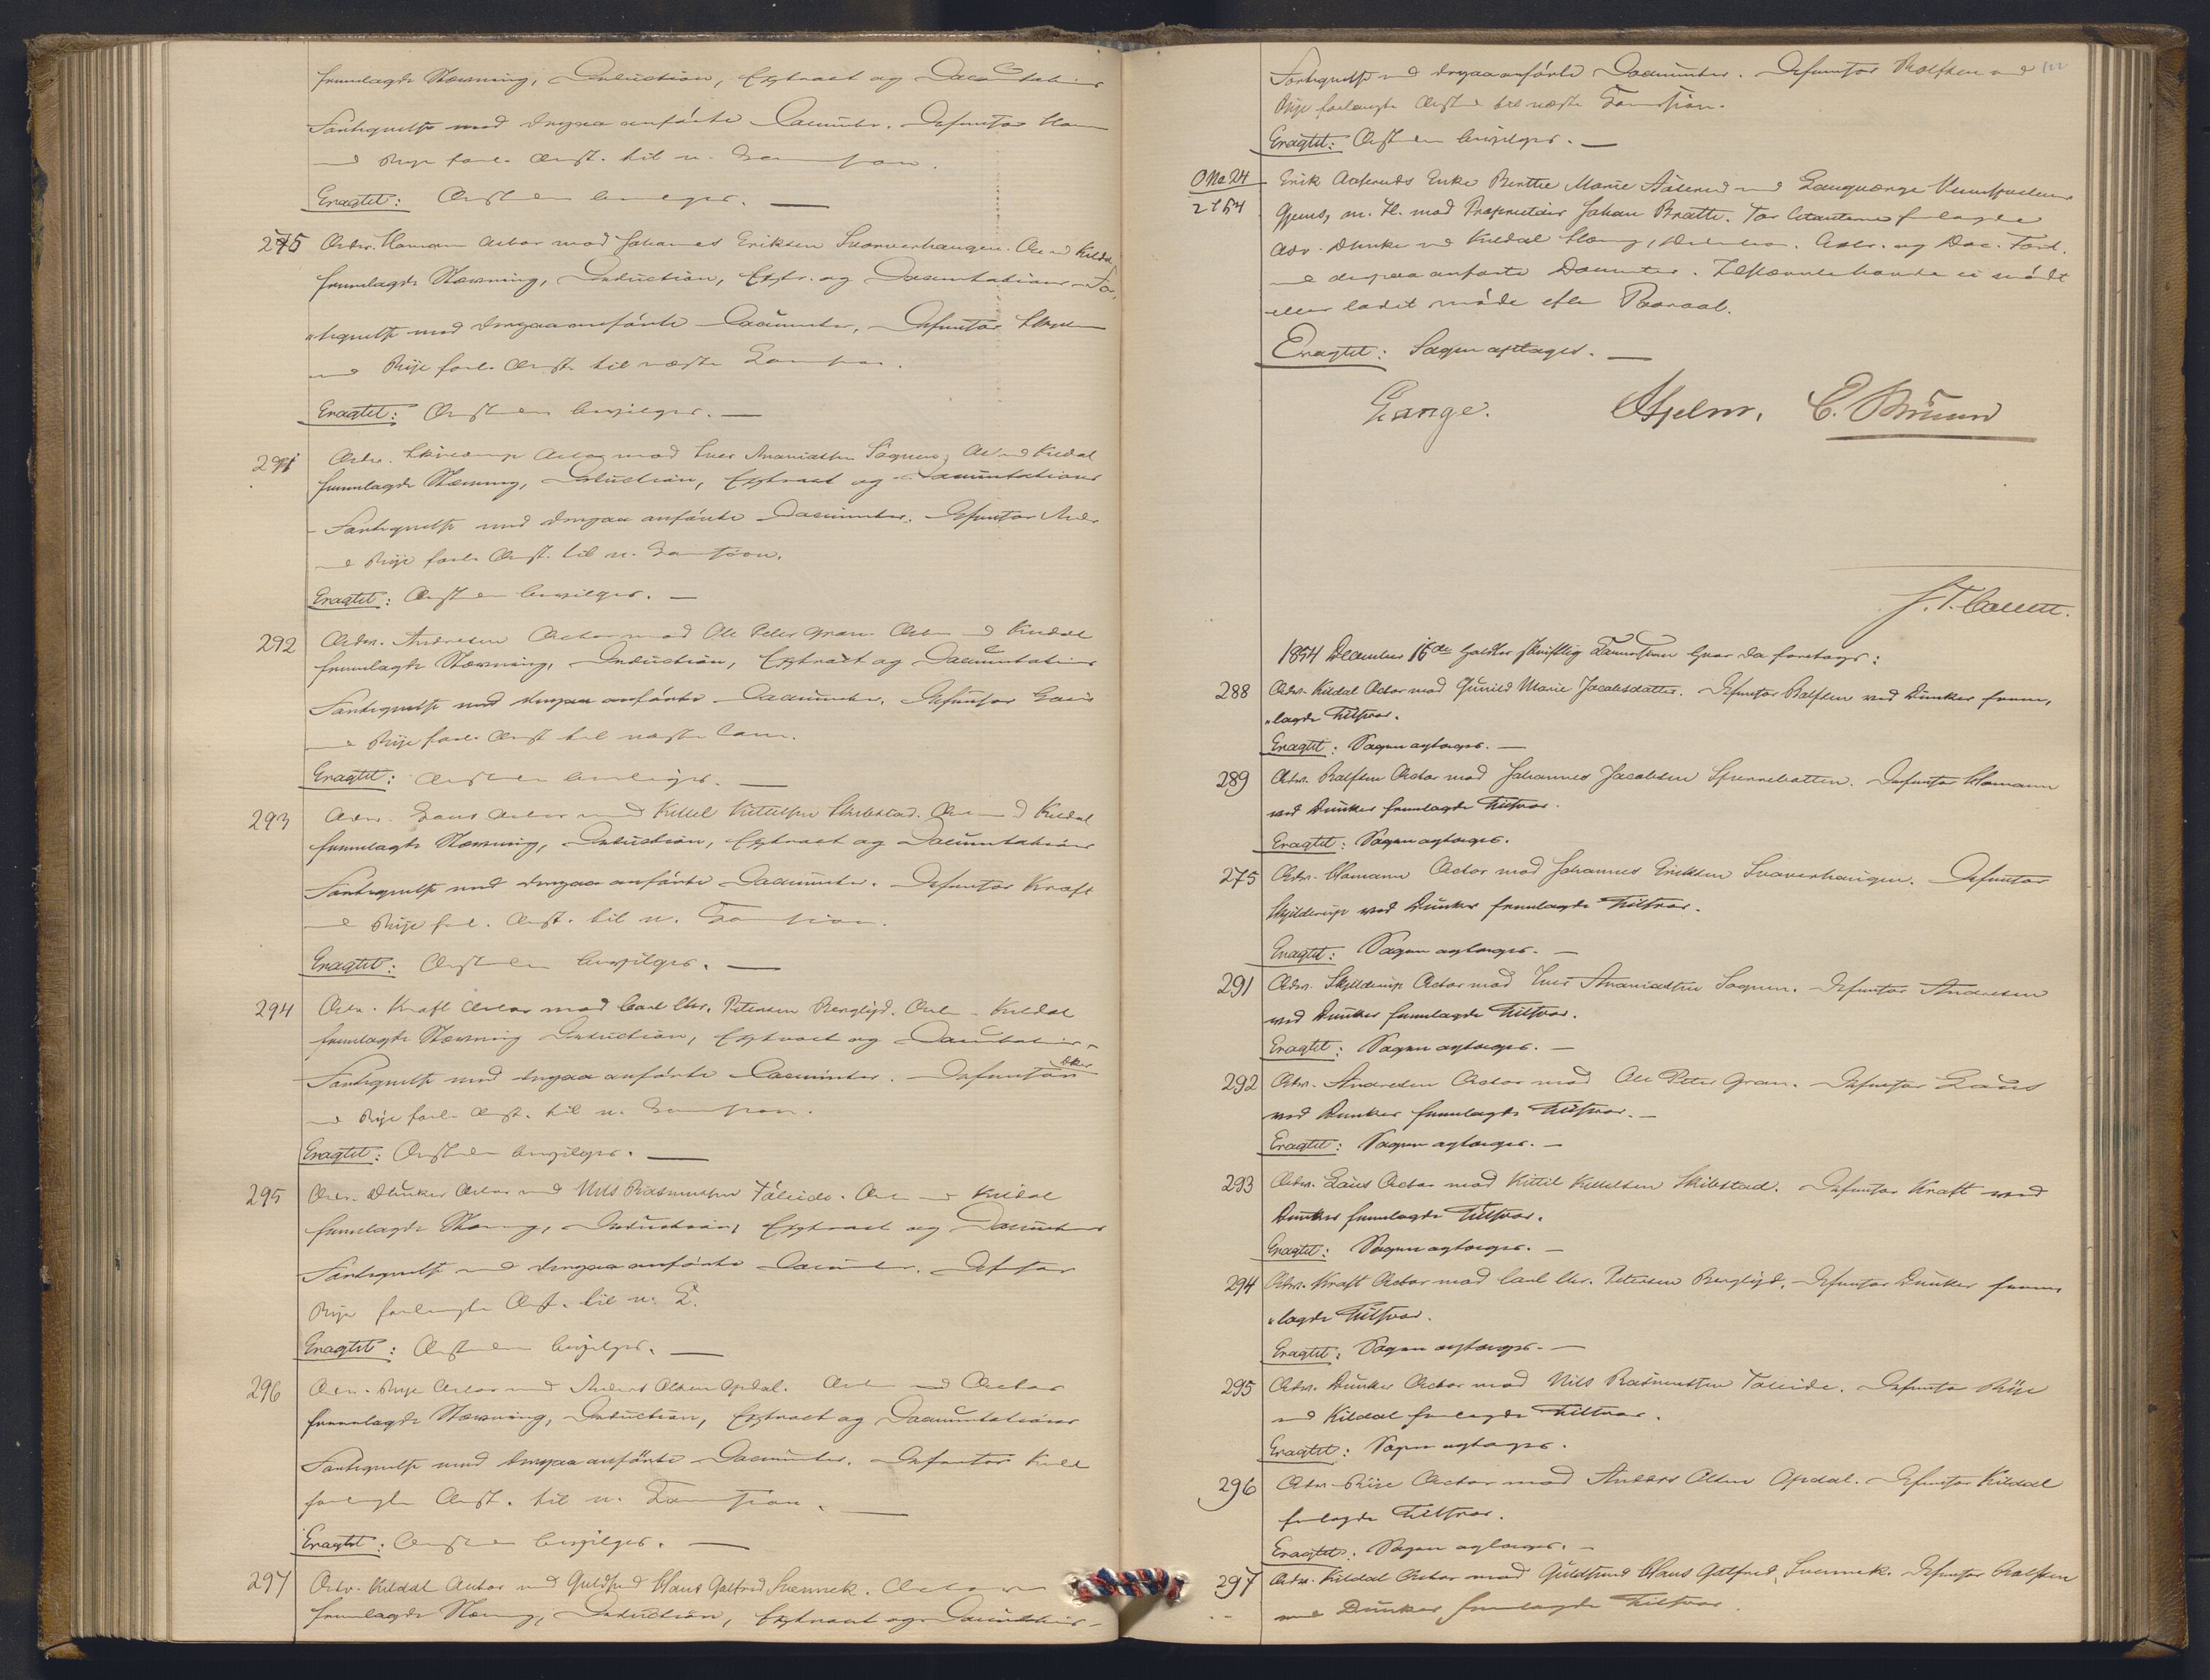 fremlagde Stævning, Induction, Extract og Documentations
Fortegnelse med derpaa anførte Documenter. Defensor
ved Rije forl. Anst. til n. Samsion.
Eragtet: Anstanden bevilges. —
275 Adv. Homann Actor mod Johannes Eriksen Svarverhaugen. Act. ved Kildal
fremlagde Stævning, Induction, Extr. og Documentations-For,
„tegnelse med derpaa anførte Documenter. Defensor
ved Rije forl. Anst. til næste Samsion.
Eragtet: Anstanden bevilges. —
291 Adv. Actor mod Iver Ananiassen Sognen, Act. ved Kildal
fremlagde Stævning, Induction, Extract og Documentations
Fortegnelse med derpaa anførte Documenter. Defensor Andr
ved Rije forl. Anst. til n. Samsion.
Eragtet: Anstanden bevilges. —
292 Adv. Andresen Actor mod Ole Peter Gran. Actor ved Kildal
fremlagde Stævning, Induction, Extract og Documentations
Fortegnelse med derpaa anførte Documenter. Defensor
ved Rije forl. Anst til næste Sam.
Eragtet: Anstanden bevilges. —
293 Adv. Laus Actor mod Kittel Kittelsen Skibstad. Act. ved Kildal
fremlagde Stævning, Induction, Extract og Documentations
Fortegnelse med derpaa anførte Documenter. Defensor Kraft
ved Rije forl. Anst. til n. Samsion.
Eragtet: Anstanden bevilges. —
294 Adv. Kraft Actor mod Carl Chr. Petersen Bergligd. Act. Kildal
fremlagde Stævning Induction, Extract og Documentations-
Fortegnelse med derpaa anførte Documenter. Defensor Dker
ved Rije forl. Anst. til n. Samsion.
Eragtet: Anstanden bevilges. —
295 Adv. Dunker Actor mod Nils Rasmussen Tøleide. Act. ved Kildal
fremlagde Stævning, Induction, Extract og Document
Fortegnelse med derpaa anførte Documenter. Defensor
Rije forlangte Anst. til n. S.
Eragtet: Anstanden bevilges. —
296 Adv. Rije Actor mod Anders Olsen Opdal. Act. ved Actor
fremlagde Stævning, Induction, Extract og Documentations
Fortegnelse med derpaa anførte Documenter. Defensor Kild
forlangte Anst. til n. Samsion. —
Eragtet: Anstanden bevilges. —
297 Adv. Kildal Actor mod Guldsmed Hans Galfred Svennek. Actor
fremlagde Stævning, Induction, Extract og Documentations-
Fortegnelse med derpaa anførte Documenter. Defensor Rolfsen ved
Rije forlangte Anstand til næste Samsion.
Eragtet: Anstanden bevilges. —
O No 24
2 1854
Erik Aaseruds Enke Berthe Marie Aaserud med Laugværge
Gjems, m. Fl. mod Proprietair Johan Bratte. For Citanterne fremlagde
Adv. Dunker ved Kildal Stævning, Induction. Extr. og Doc. Fort.
med derpaa anførte Documenter. Indstævnte havde ei mødt
eller ladet møde efter Paaraab.
Eragtet: Sagen optages. —
Lange. Hjelm. C. Bruun
1854 December 16de holdtes skriftlig Samsion hvor da foretoges:
288 Adv. Kildal Actor mod Gunild Marie Jacobsdatter. Defensor Rolfsen ved Dunker frem,
„lagde Tilsvar.
Eragtet: Sagen optages. —
289 Adv. Rolfsen Actor mod Johannes Jacobsen Spennebotten. Defensor Homann
ved Dunker fremlagde Tilsvar.
Eragtet: Sagen optages.
275 Adv. Homann Actor mod Johannes Eriksen Svarverhaugen. Defensor
Skjilderup ved Dunker fremlagde Tilsvar.
Eragtet: Sagen optages. —
291 Adv. Skjilderup Actor mod Iver Ananiassen Sognen. Defensor Andresen
ved Dunker fremlagde Tilsvar.
Eragtet: Sagen optages. —
292 Adv. Andresen Actor mod Ole Peter Gran. Defensor Laus
ved Dunker fremlagde Tilsvar. —
Eragtet: Sagen optages. —
293 Adv. Laus Actor mod Kittil Kittelsen Skibstad. Defensor Kraft ved
Dunker fremlagde Tilsvar.
Eragtet: Sagen optages. —
294 Adv. Kraft Actor mod Carl Chr. Petersen Bergligd. Defensor Dunker frem
„lagde Tilsvar.
Eragtet: Sagen optages. —
295 Adv. Dunker Actor mod Nils Rasmussen Tøleide. Defensor Rije
ved Kildal fremlagde Tilsvar.
Eragtet: Sagen optages.
296 Adv. Rije Actor mod Anders Olsen Opdal. Defensor Kildal
fremlagde Tilsvar.
Eragtet: Sagen optages. —
297 Adv. Kildal Actor mod Guldsmed Hans Galfred Svennek. Defensor Rolfsen
ved Dunker fremlagde Tilsvar